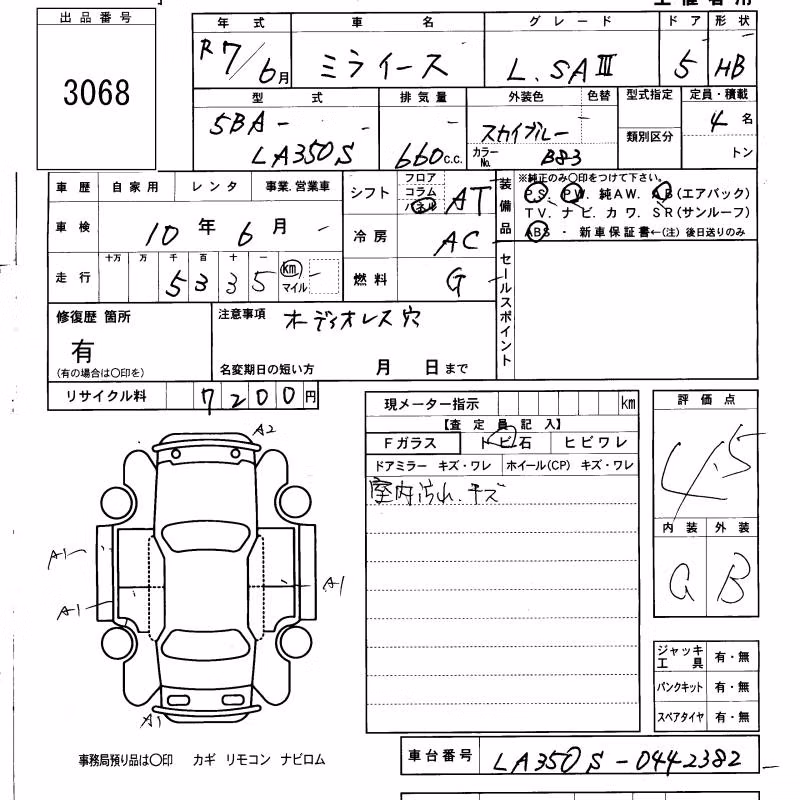 出品番号
3068
年式 車名 グレード ドア 形状
R7/6月 ミライース L.SAⅢ 5 HB
型式 排気量 外装色 色替 型式指定 定員・積載
5BA-
LA350S 660c.c. スカイブルー 4名
カラーNo. B83 類別区分 トン
車歴 自家用 レンタ 事業.営業車 シフト フロア コラム パネル AT
装備品
※純正のみ○印をつけて下さい。
P.S. P.W. 純AW. A.B(エアバック)
TV. ナビ. カワ. SR(サンルーフ)
ABS ・ 新車保証書←(注) 後日送りのみ
車検 10年6月 冷房 AC
走行 十万 万 千 百 十 一
5335 km マイル 燃料 G
セールスポイント
修復歴 箇所
有
(有の場合は○印を)
注意事項 オーディオレス穴
名変期日の短い方 月 日まで
リサイクル料 7200円
現メーター指示 km
【査定員記入】
Fガラス トビ石 ヒビワレ
ドアミラー キズ・ワレ ホイール(CP) キズ・ワレ
室内汚れ.キズ
評価点
4.5
内装 外装
B
A2
A1
A1
A1
A1
ジャッキ工具 有・無
パンクキット 有・無
スペアタイヤ 有・無
事務局預り品は○印 カギ リモコン ナビロム
車台番号 LA350S-0442382